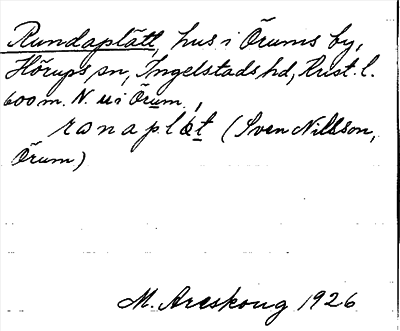 Rundaplätt, hus i Örums by,
Hörups sn, Ingelstads hd, Krist. l.
600 m. N. u i Örum,
ranaplæt (Sven Nilsson,
Örum)
M. Areskoug 1926